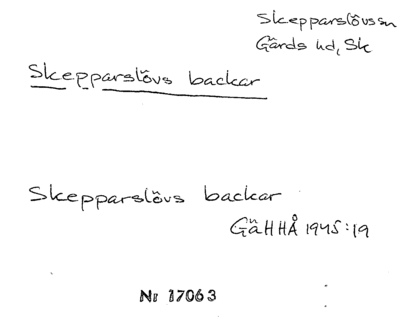 Skepparslövs sn
Gärds hd, Sk
Skepparslövs backar
Skepparslövs backar
GäHHÅ 1945:19
Nr 17063